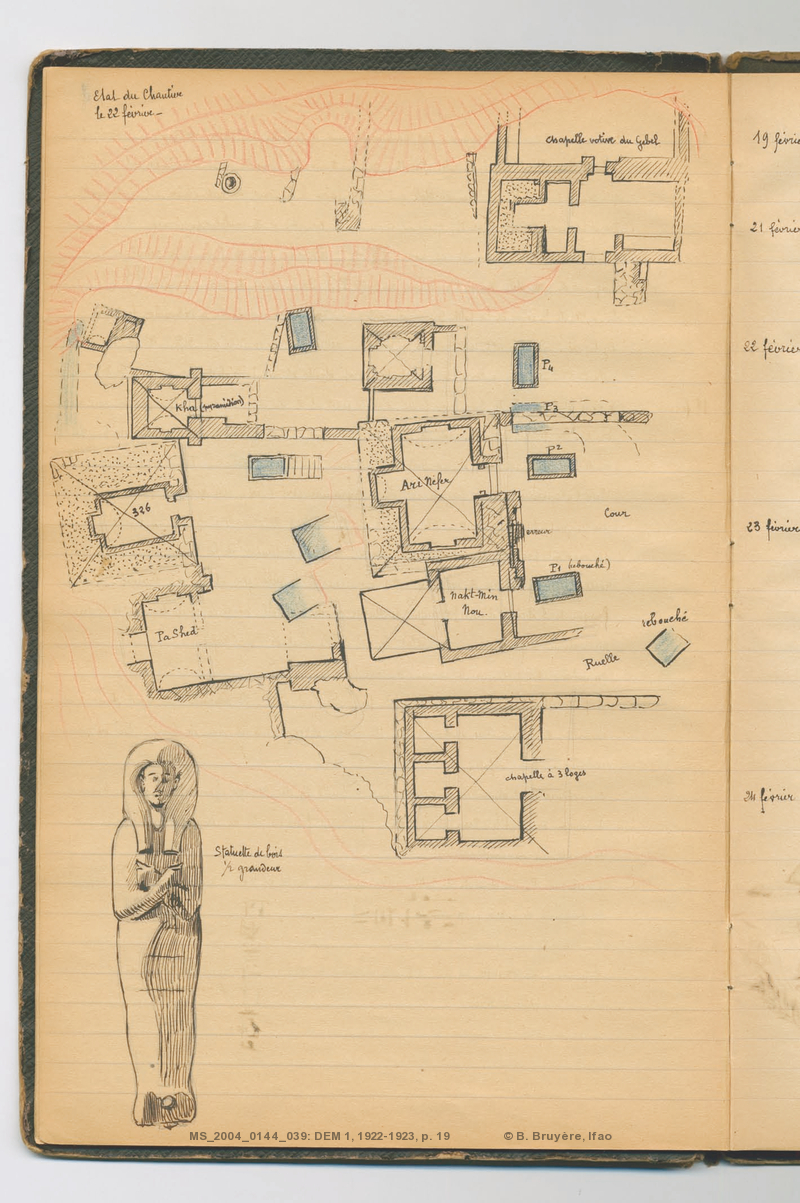 Etat du Chantier
le 22 février-
chapelle votive du Gebel
19 févrie
21 février
22 février
P4
Kha (pyramidion)
P3
Ari Nefer
P2
326
Cour
23 février
erreur
P1 (rebouché)
Nakt-Min
Nou.
PaShed
rebouché
Ruelle
chapelle à 3 loges
24 février
Statuette de bois
1/2 grandeur
MS_2004_0144_039: DEM 1, 1922-1923, p. 19 © B. Bruyère, Ifao